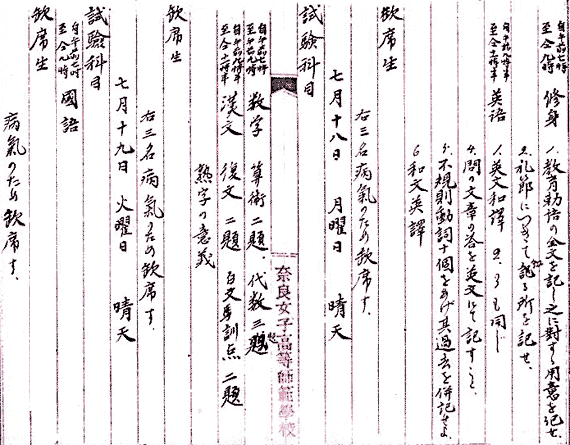 自午前七時
至仝九時
修身
1. 教育勅語の全文を記し之に対する用意を記せ
2. 礼節につきて記る所を記せ.
自午前九時半
至仝十一時半
英語
1. 英文和譯 2, 3も同じ
4. 問の文章の答を英文にて記すこと.
5. 不規則動詞十個をあげ其過去を併記せよ
6 和文英譯
欽席生
右三名病氣のため欽席す.
七月十八日 月曜日 晴天
試驗科目
奈良女子高等師範學校
自午前七時
至仝九時
数学 算術二題. 代数三題
自午前九時半
至仝十一時半
漢文 復文二題 白文馬訓点 二題
熟字の意義
欽席生
右三名病氣のため欽席す.
七月十九日 火曜日 晴天
試驗科目
自午前七時
至仝九時
國語
欽席生
病氣のため欽席す.